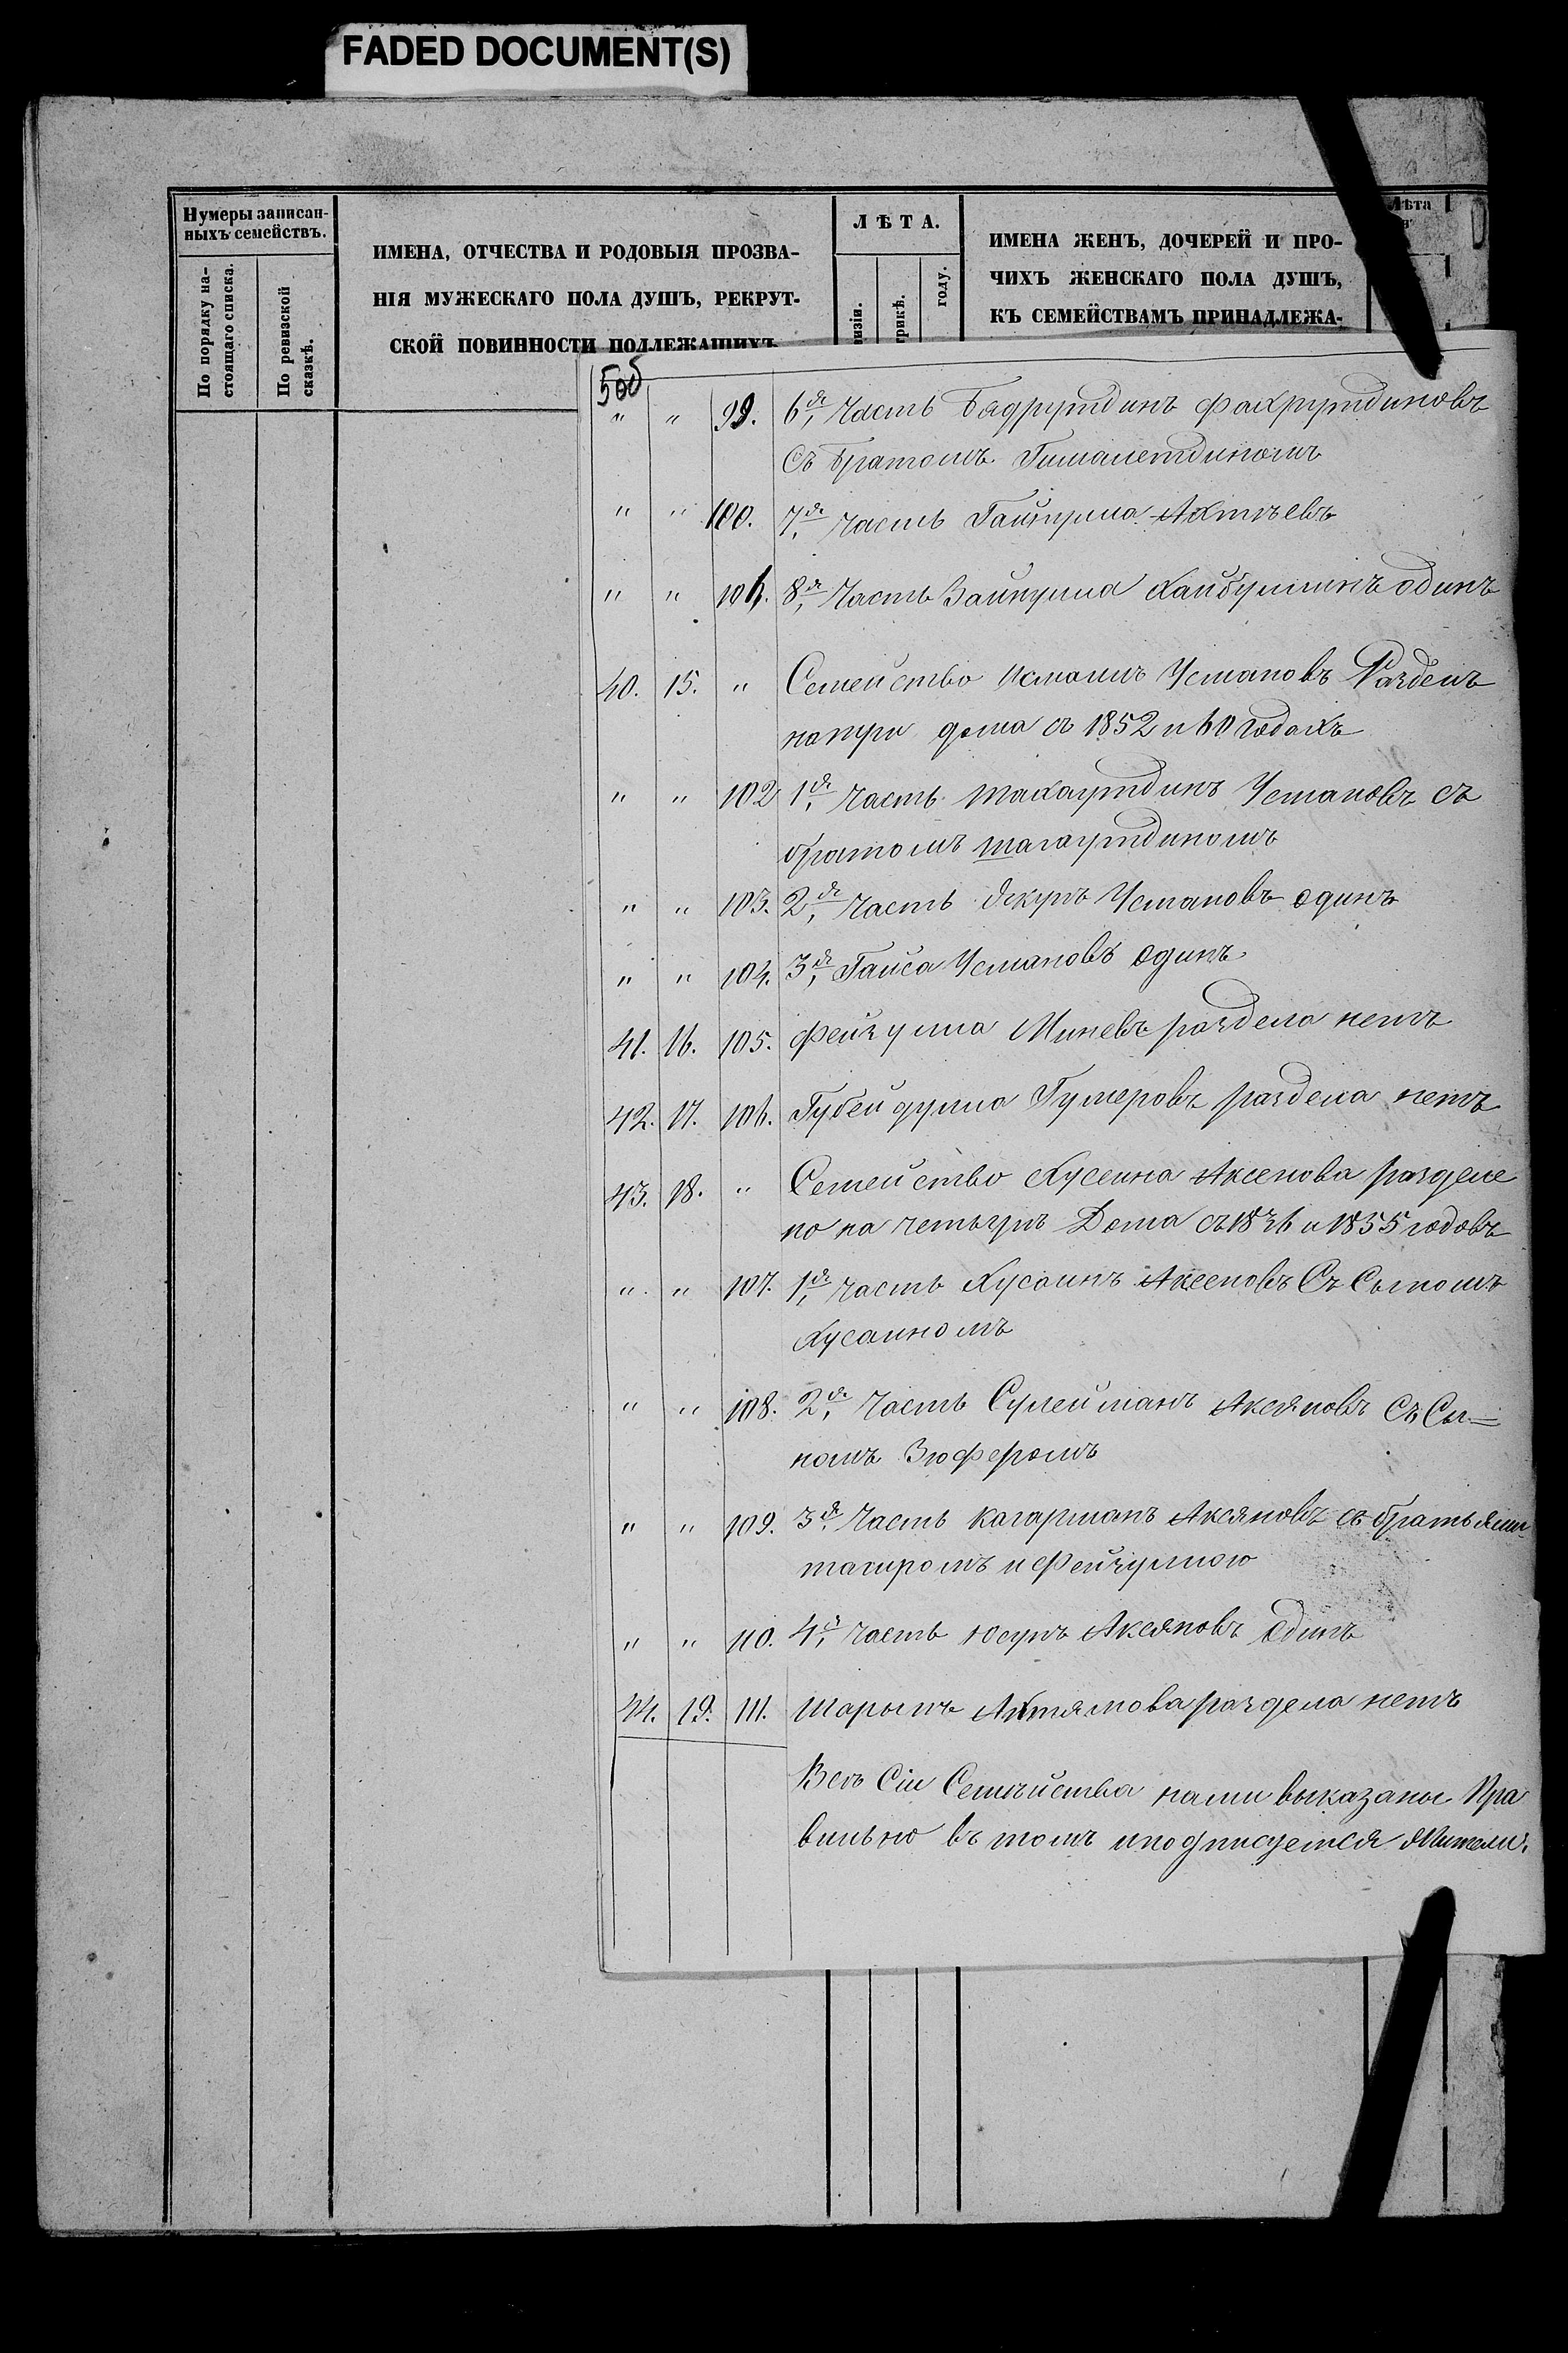 FADED DOCUMENT(S)
Нумеры записан-
ныхъ семействъ.
По порядку на-
стоящаго списка.
По ревизской
сказкѣ.
ИМЕНА, ОТЧЕСТВА И РОДОВЫЯ ПРОЗВА-
НІЯ МУЖЕСКАГО ПОЛА ДУШЪ, РЕКРУТ-
СКОЙ ПОВИННОСТИ ПОДЛЕЖАЩИХЪ
ЛѢТА.
изіи.
трикѣ.
году.
ИМЕНА ЖЕНЪ, ДОЧЕРЕЙ И ПРО-
ЧИХЪ ЖЕНСКАГО ПОЛА ДУШЪ,
КЪ СЕМЕЙСТВАМЪ ПРИНАДЛЕЖА-
Лѣта
" " 99. 6я, Часть Бадрутдинъ Фахрутдиновъ
съ братомъ Гималетдиномъ
" " 100. 7я, часть Гайнулла Ахтѣевъ
" " 101. 8я, Часть Зайнулла Хайбуллинъ одинъ
40. 15. " Семейство Исмаилъ Установъ Разделъ
на три дома съ 1852 и 60 годахъ
" " 102 1я, часть Шахаутдинъ Установъ съ
братомъ шагаутдиномъ
" " 103. 2я, часть Якупъ Установъ одинъ
" " 104. 3я, Гайса Установъ одинъ
41. 16. 105. Фейзулла Миневъ раздела нетъ
42. 17. 106. Губейдулла Гумеровъ раздела нетъ
43. 18. " Семейство Хусеина Аксенова разделе
но на четыре Дома съ 1836 и 1855 годовъ
" " 107. 1я, часть Хусаинъ Аксеновъ Съ Сыномъ
Хусаиномъ
" " 108. 2я, Часть Сулейманъ Аксяновъ Съ Сы=
номъ Зюферомъ
" " 109. 3я, Часть Кагарманъ Аксяновъ съ братьями
тагиромъ и Фейзуллою
" " 110. 4я, часть Юсупъ Аксяновъ Один
44. 19. 111. Шарыпъ Ахтямова раздела нетъ
Всѣ Сіи Семѣйства нами высказаны Пра
вильно въ томъ и подписуемся Жители.